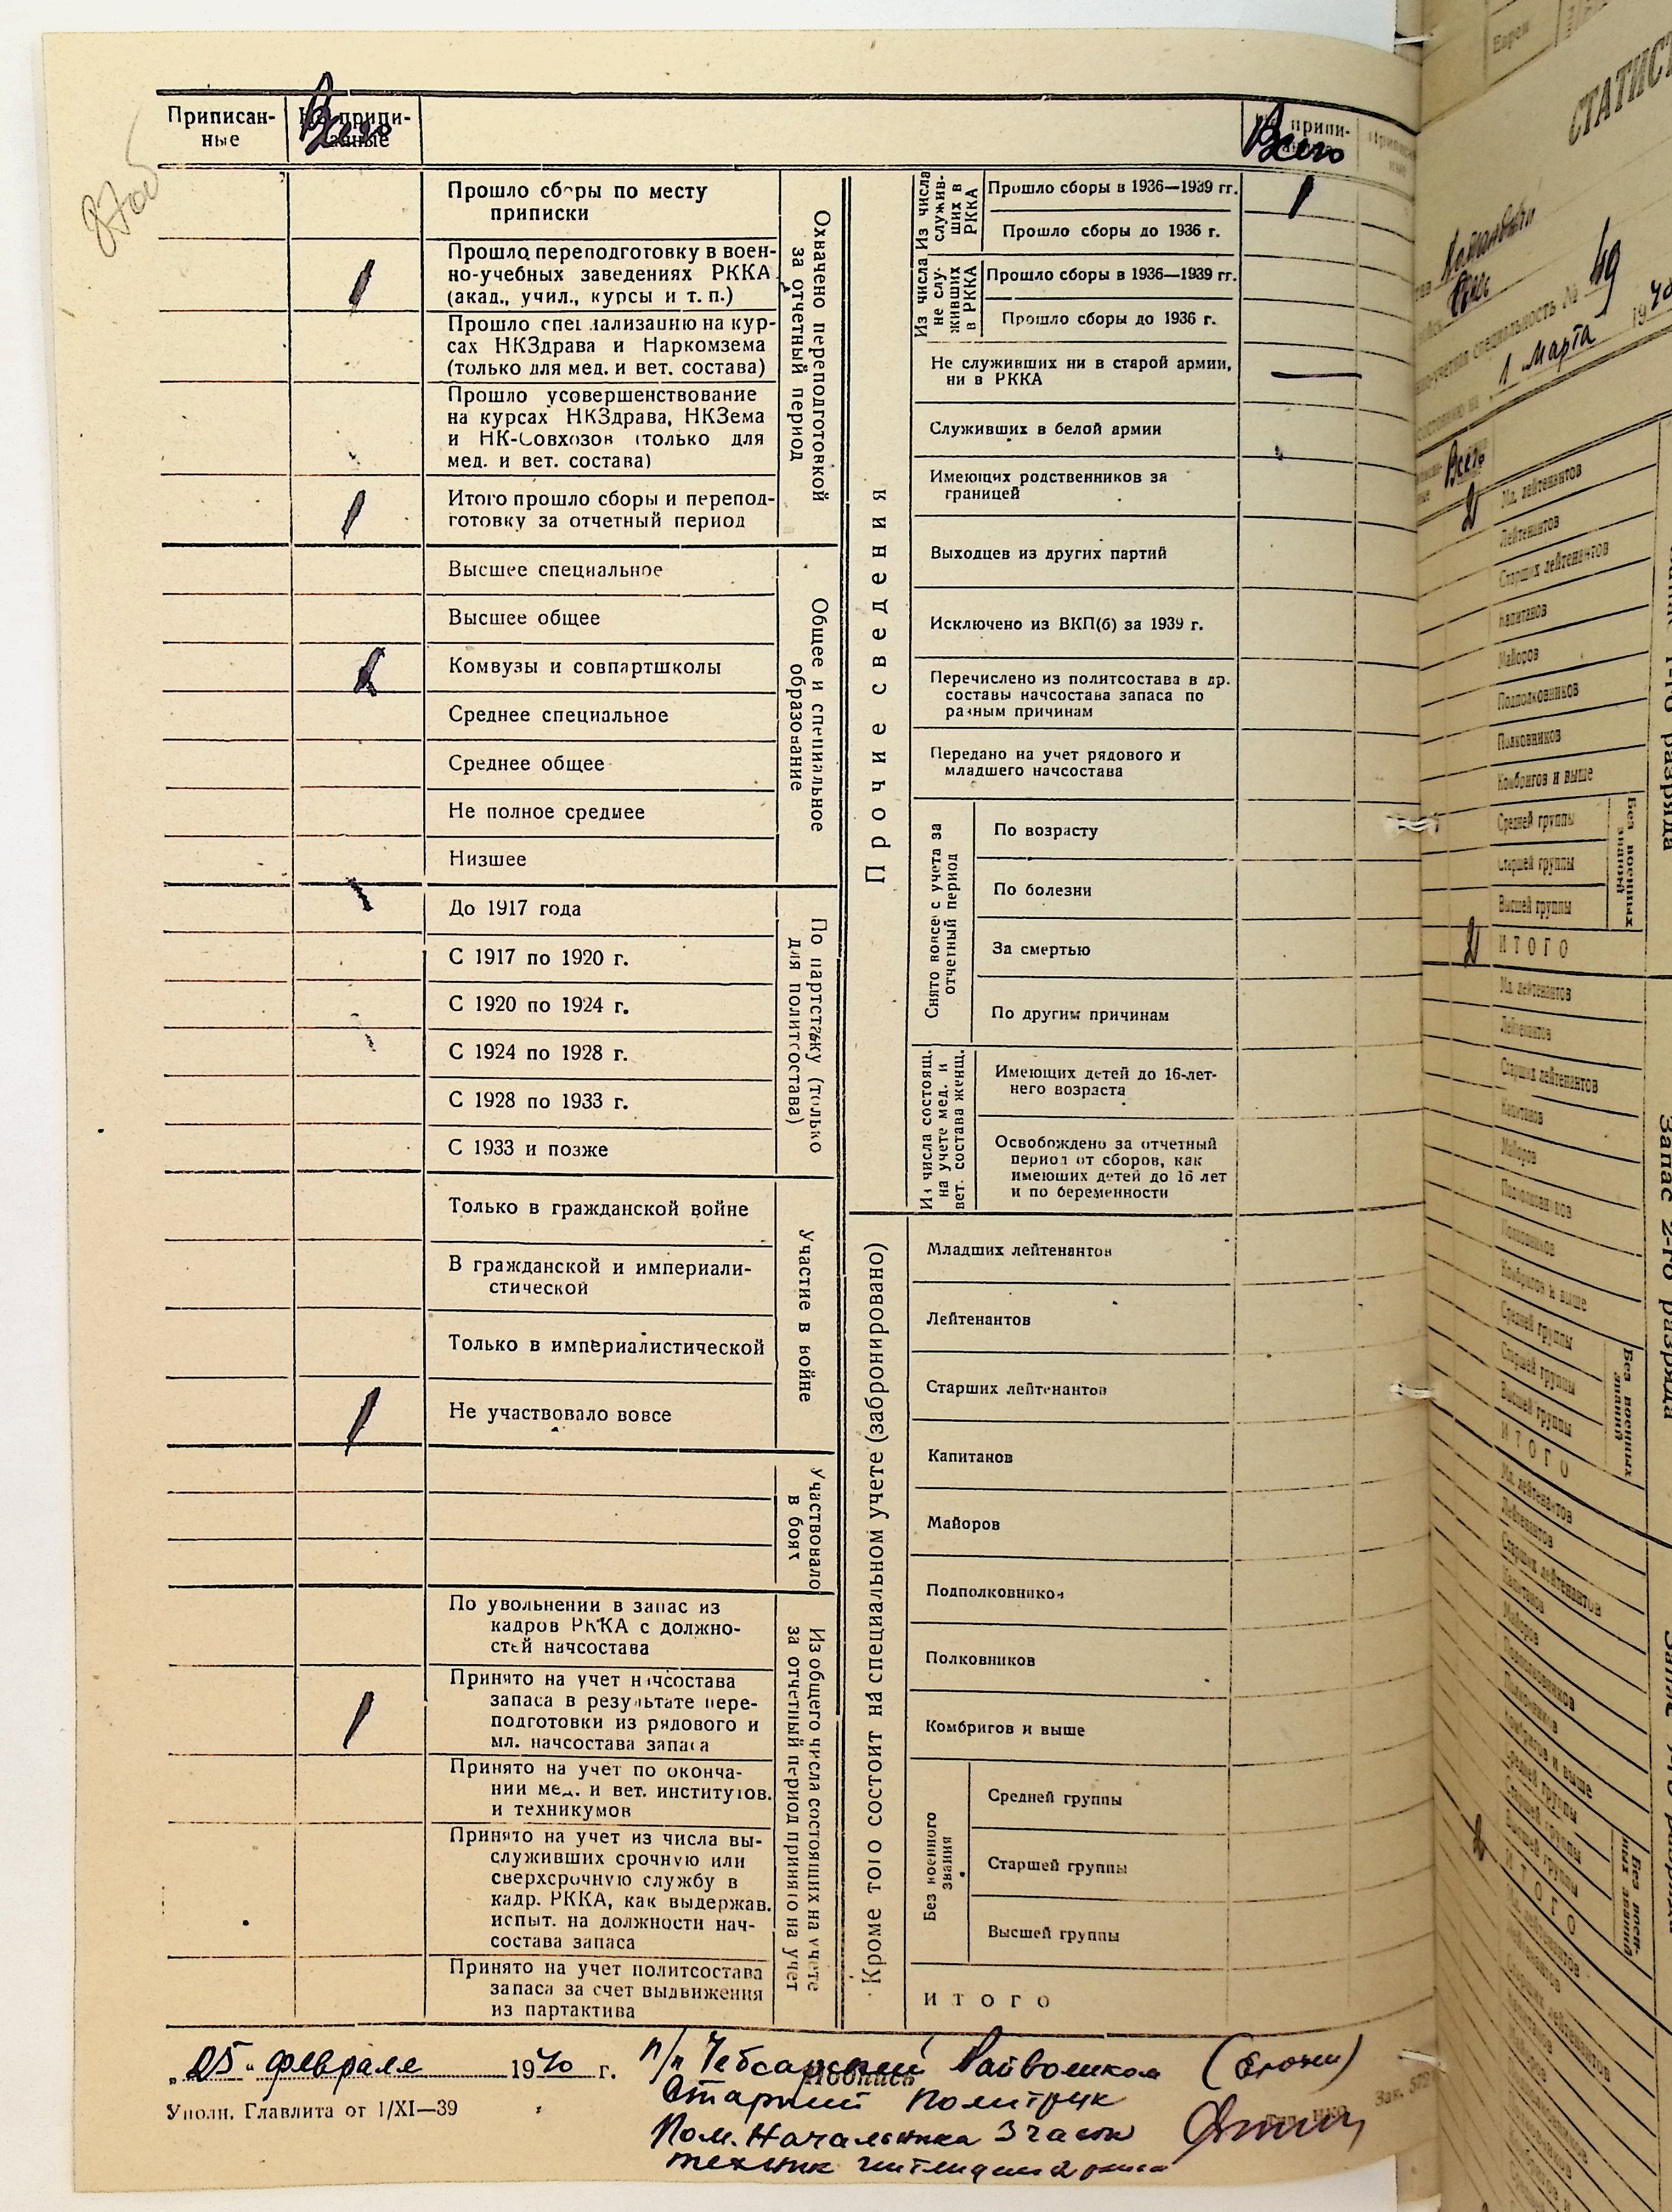 Приписан-
ные
Не приписанные
Всего
Прошло сборы по месту
приписки
Прошло переподготовку в воен-
но-учебных заведениях РККА
(акад., учил., курсы и т. п.)
1
Прошло специализацию на кур-
сах НКЗдрава и Наркомзема
(только для мед. и вет. состава)
Прошло усовершенствование
на курсах НКЗдрава, НКЗема
и НК-Совхозов (только для
мед. и вет. состава)
Итого прошло сборы и перепод-
готовку за отчетный период
1
Охвачено переподготовкой
за отчетный период
Высшее специальное
Высшее общее
Комвузы и совпартшколы
Среднее специальное
Среднее общее
Не полное среднее
Низшее
Общее и специальное
образование
До 1917 года
С 1917 по 1920 г.
С 1920 по 1924 г.
С 1924 по 1928 г.
С 1928 по 1933 г.
С 1933 и позже
По партстажу (только
для политсостава)
Только в гражданской войне
В гражданской и империали-
стической
Только в империалистической
Не участвовало вовсе
1
Участие в войне
Участвовало
в боях
По увольнении в запас из
кадров РККА с должно-
стей начсостава
Принято на учет начсостава
запаса в результате пере-
подготовки из рядового и
мл. начсостава запаса
1
Принято на учет по оконча-
нии мед. и вет. институтов.
и техникумов
Принято на учет из числа вы-
служивших срочную или
сверхсрочную службу в
кадр. РККА, как выдержав.
испыт. на должности нач-
состава запаса
Принято на учет политсостава
запаса за счет выдвижения
из партактива
Из общего числа состоящих на учете
за отчетный период принято на учет
припи-
Всего
Прочие сведения
Из числа
служив-
ших в
РККА
Прошло сборы в 1936—1939 гг.
1
Прошло сборы до 1936 г.
Из числа
не слу-
живших
в РККА
Прошло сборы в 1936—1939 гг.
Прошло сборы до 1936 г.
Не служивших ни в старой армии,
ни в РККА
—
Служивших в белой армии
Имеющих родственников за
границей
Выходцев из других партий
Исключено из ВКП(б) за 1939 г.
Перечислено из политсостава в др.
составы начсостава запаса по
разным причинам
Передано на учет рядового и
младшего начсостава
Снято вовсе с учета за
отчетный период
По возрасту
По болезни
За смертью
По другим причинам
Из числа состоящ.
на учете мед. и
вет. состава женщ.
Имеющих детей до 16-лет-
него возраста
Освобождено за отчетный
период от сборов, как
имеющих детей до 16 лет
и по беременности
Кроме того состоит на специальном учете (забронировано)
Младших лейтенантов
Лейтенантов
Старших лейтенантов
Капитанов
Майоров
Подполковников
Полковников
Комбригов и выше
Без военного
звания
Средней группы
Старшей группы
Высшей группы
ИТОГО
„25“ февраля 1940 г.
Подпись
п/п Чебсарский Райвоенком
Старший политрук
Пом. Начальника 3 части
техник интендант 2 ранга
Уполн. Главлита от 1/XI—39
Зак.
Евреи
СТАТИСТ
специальность № 49
1 марта 1940
Всего
2
Мл. лейтенантов
Лейтенантов
Старших лейтенантов
Капитанов
Майоров
Подполковников
Полковников
Комбригов и выше
Средней группы
Старшей группы
Высшей группы
Без военных
званий
2
ИТОГО
Мл. лейтенантов
Лейтенантов
Старших лейтенантов
Капитанов
Майоров
Подполковников
Полковников
Комбригов и выше
Средней группы
Старшей группы
Высшей группы
Без военных
званий
ИТОГО
Запас 2-го разряда
Мл. лейтенантов
Лейтенантов
Старших лейтенантов
Капитанов
Майоров
Подполковников
Полковников
Комбригов и выше
Средней группы
Старшей группы
Высшей группы
2
ИТОГО